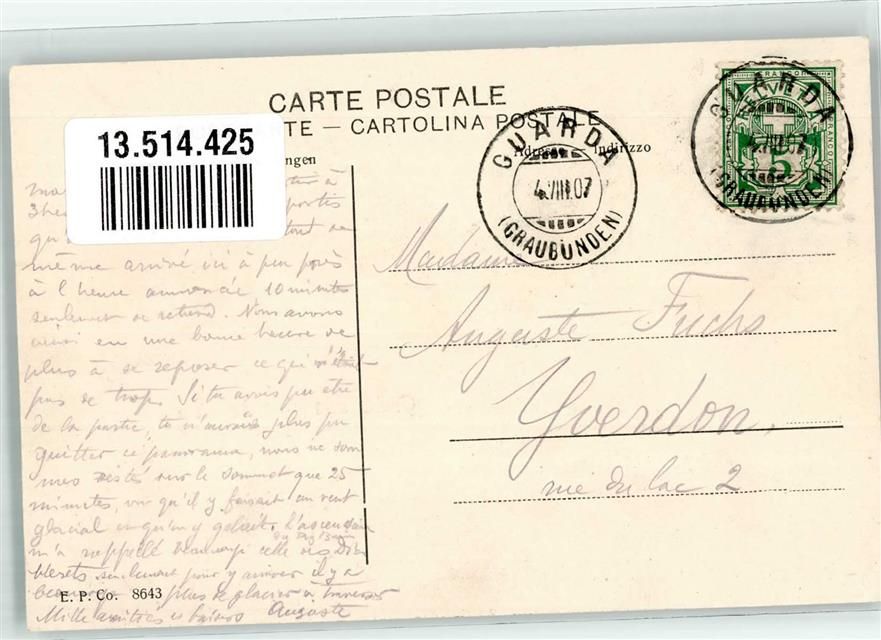 CARTE POSTALE
TE — CARTOLINA POSTALE
13.514.425
ngen
Adresse — Indirizzo
GUARDA
4.VIII.07
(GRAUBÜNDEN)
GUARDA
VIII.07
(GRAUBÜNDEN)
HELVETIA
FRANCO
5
Madame
Auguste Fuchs
Yverdon.
rue du lac 2
à
3 he
qu tout de
même arrivé ici à peu près
à l'heure 10 minutes
seulement de retard. Nous avons
ainsi eu une bonne heure de
plus à se reposer ce qui n'était
pas de trop. Si tu avais pu être
de la partie, tu n'aurais plus pu
quitter ce panorama, nous ne som
mes restés sur le sommet que 25
minutes, vu qu'il y faisait un vent
glacial et qu'on y gelait. L'ascension
m'a rappellé beaucoup celle des Dia
blerets seulement pour y arriver il y a
beaucoup plus de glacier à traverser
Mille amitiés et baisers Auguste
E. P. Co. 8643